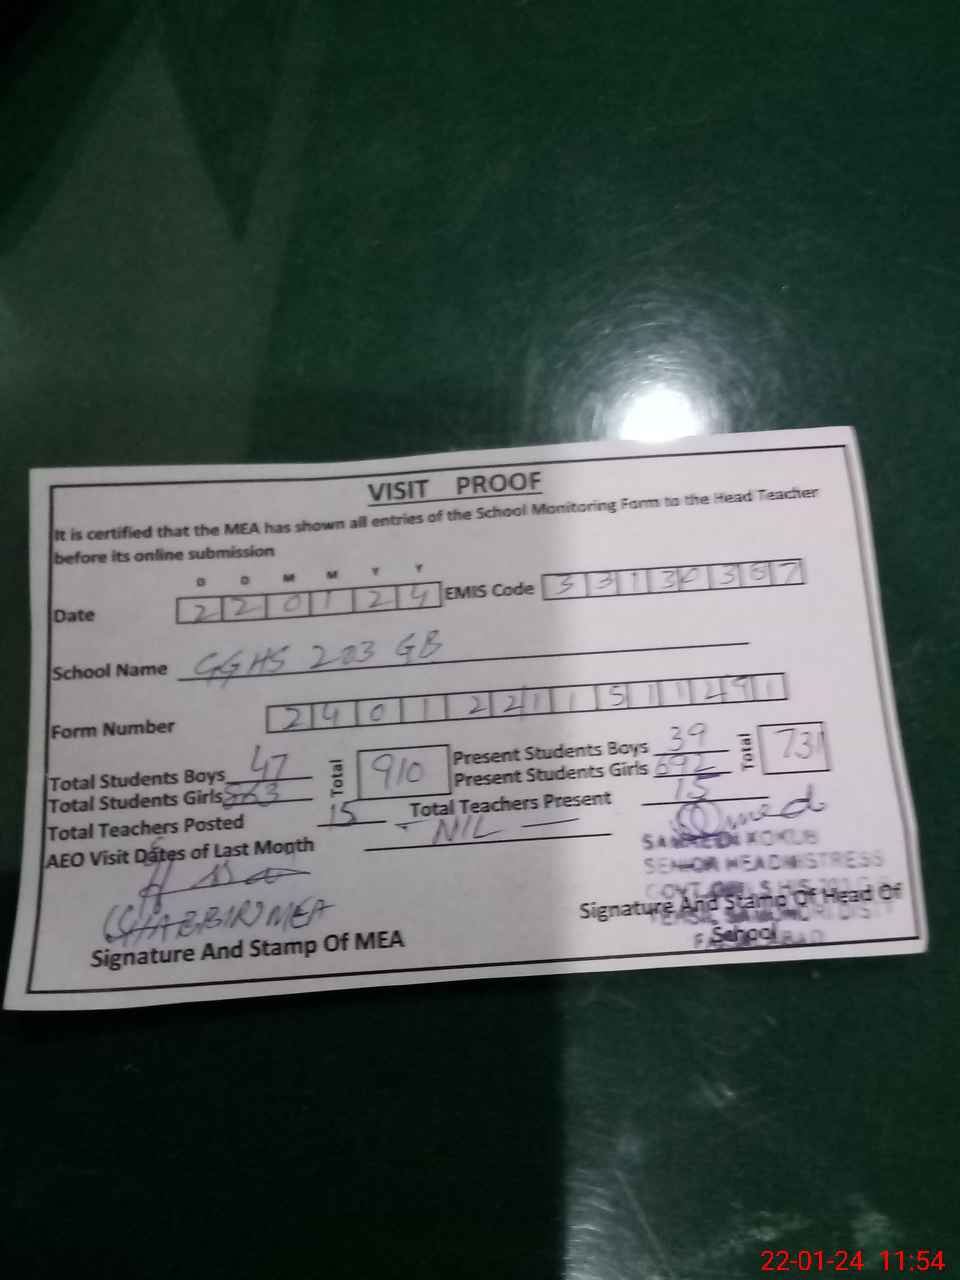 VISIT PROOF
It is certified that the MEA has shown all entries of the School Monitoring Form to the Head Teacher
before its online submission
D D M M Y Y
Date 2 2 0 1 2 4 EMIS Code 3 3 1 3 0 3 6 7
School Name GGHS 203 GB
Form Number 2 4 0 1 2 2 1 1 5 1 1 2 9 1
Total Students Boys 47 Total 910 Present Students Boys 39 Total 731
Total Students Girls 863 Present Students Girls 692
Total Teachers Posted 15 Total Teachers Present 15
AEO Visit Dates of Last Month NIL
KOKUB
SENIOR HEADMISTRESS
(SHABBIR) MEA
Signature And Stamp Of MEA
Signature And Stamp Of Head Of
School
22-01-24 11:54